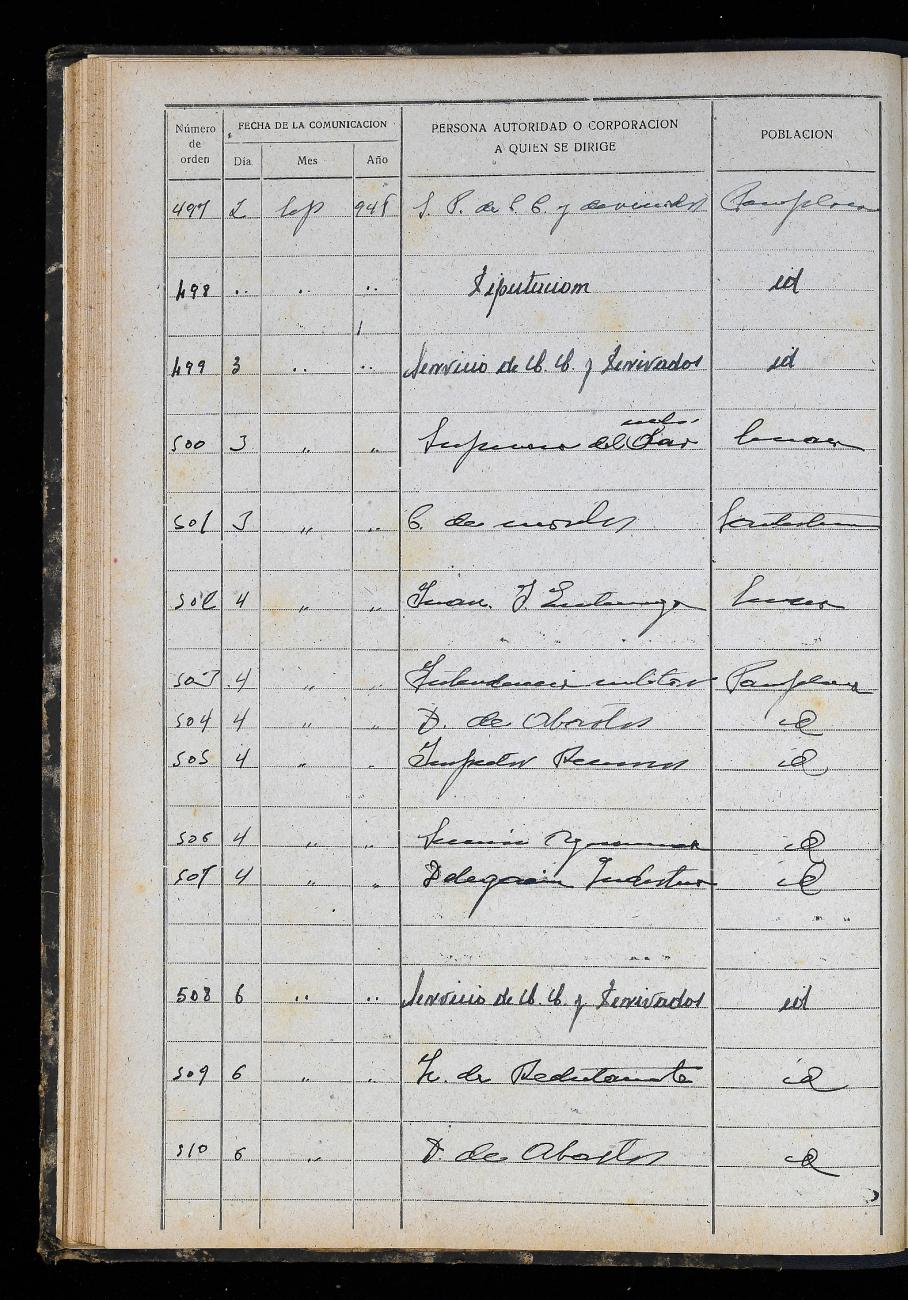 Número de orden FECHA DE LA COMUNICACION PERSONA AUTORIDAD O CORPORACION A QUIEN SE DIRIGE POBLACION
Día Mes Año
497 2 Sep 945 S. P. de C. C. y derivados Pamplona
498 .. .. .. Diputacion id
499 3 .. .. Servicio de C. C. y Derivados id
500 3 " " del
501 3 " " C. de
502 4 " " Juan
503 4 " " Intendencia militar Pamplona
504 4 " " D. de Abastos id
505 4 " " Inspector Recursos id
506 4 " " id
507 4 " " Delegacion Industria id
508 6 .. .. Servicio de C. C. y Derivados id
509 6 " " de Reclutamto id
510 6 " D. de Abastos id